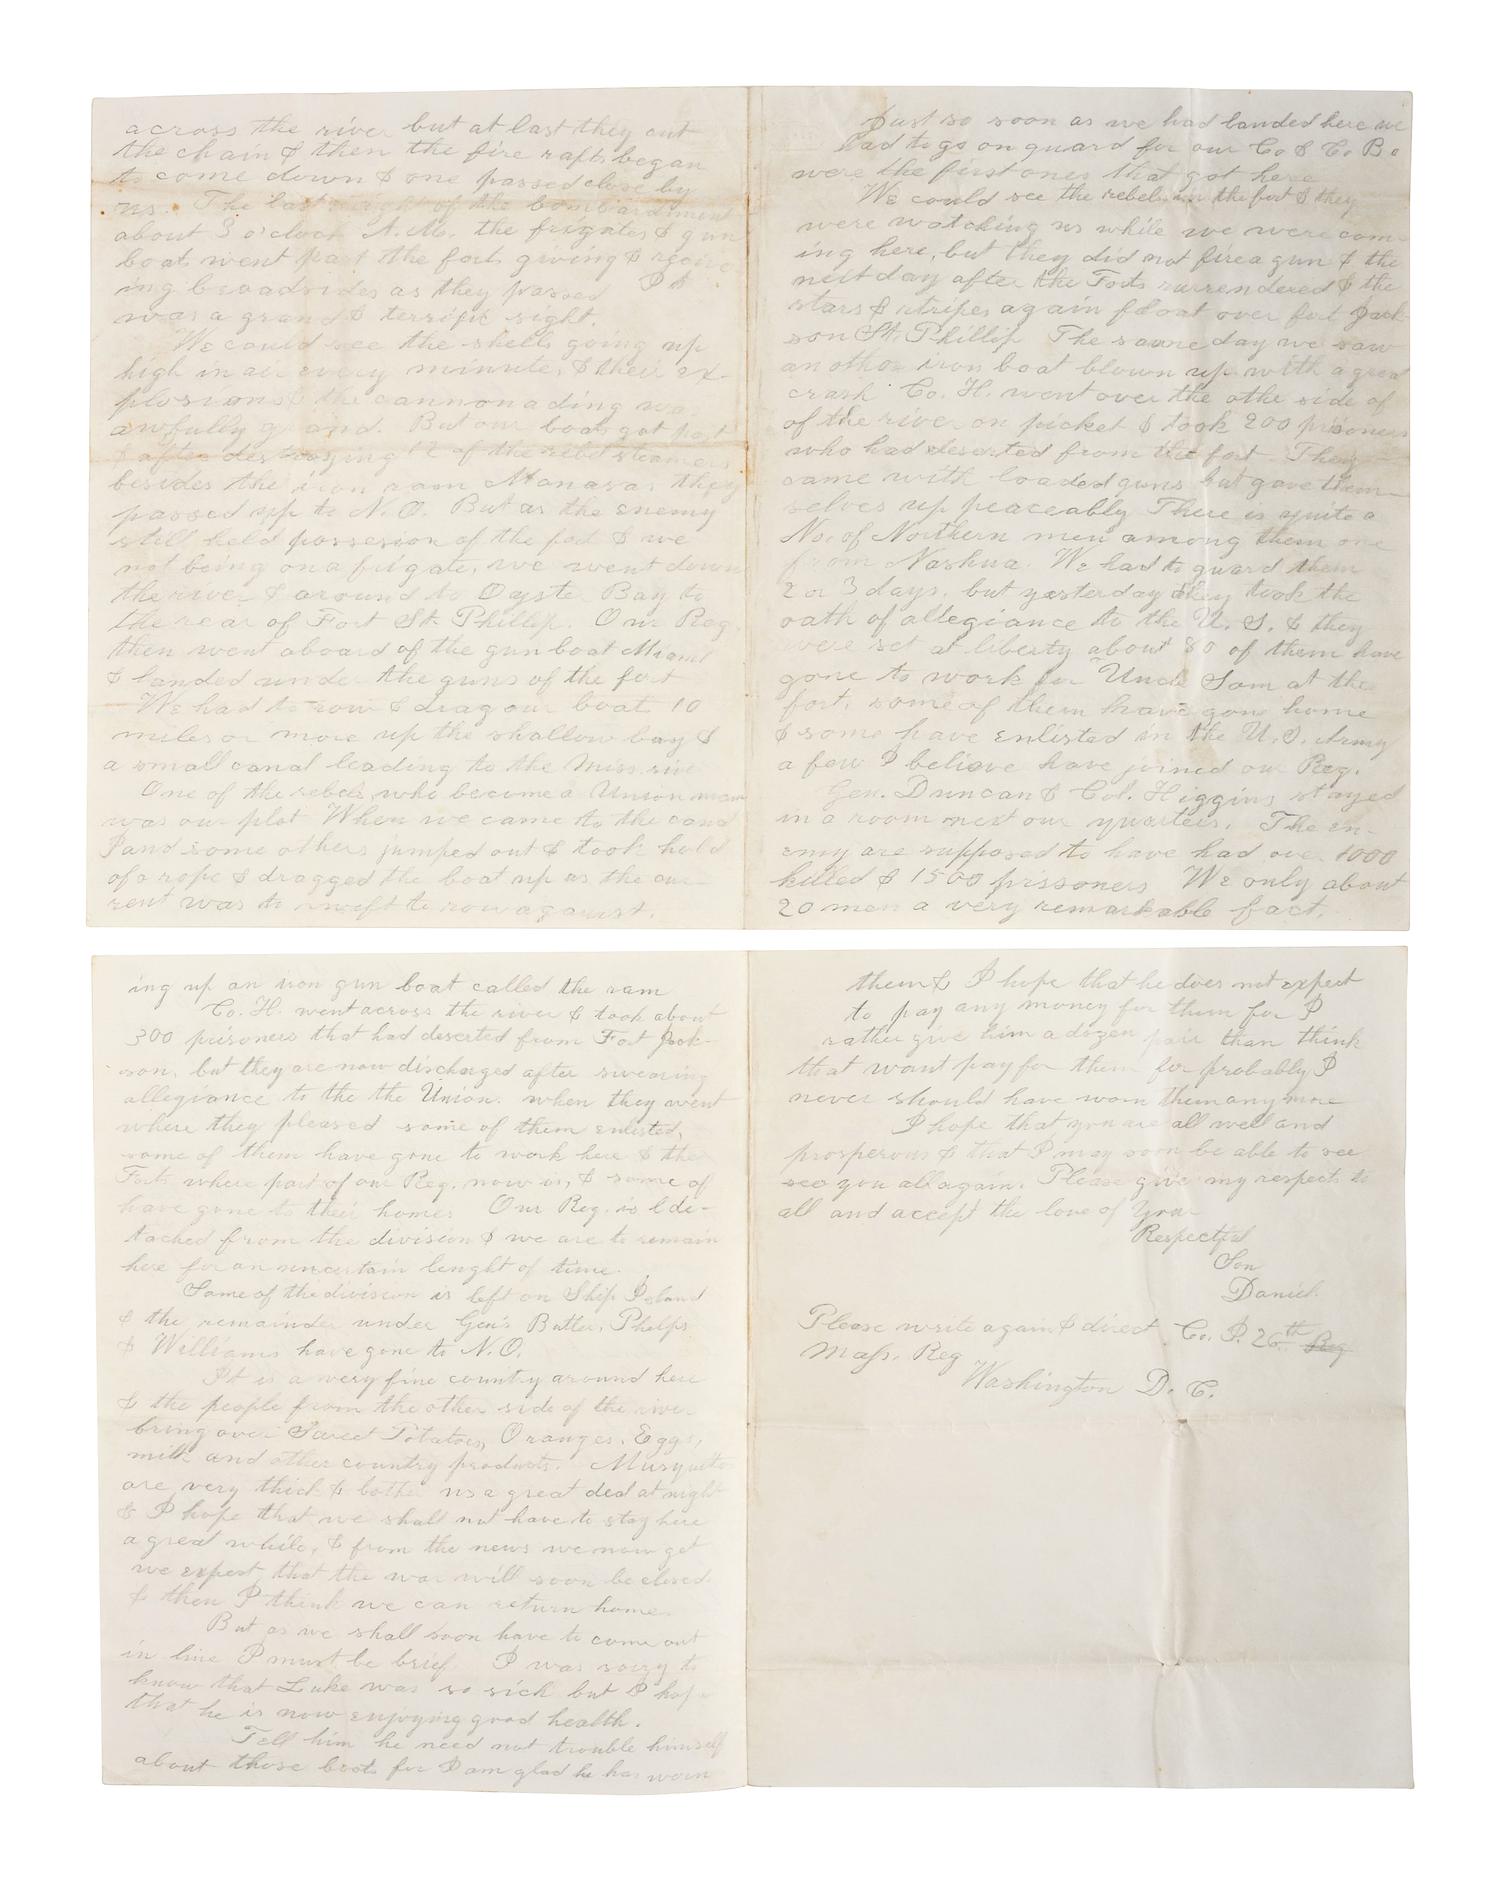 across the river but at last they cut
the chain & then the fire rafts began
to come down & one passed close by
us. The last night of the bombardment
about 3 o'clock A. M. the frigates & gun
boats went past the forts giving & receiv
ing broadsides as they passed
was a grand & terrific sight.
We could see the shells going up
high in air every minute, & their ex-
plosions & the cannonading was
awfully grand. But our boats got past
& after destroying 12 of the rebel steamers
besides the iron ram Manasas they
passed up to N. O. But as the enemy
still held possesion of the fort & we
not being on a frigate, we went down
the river & around to Oyster Bay to
the rear of Fort St. Phillip. Our Reg.
then went aboard of the gun boat Miami
& landed under the guns of the fort
We had to row & drag our boat 10
miles or more up the shallow bay &
a small canal leading to the Miss. rive
One of the rebels who become a Union man
was our plot When we came to the canal
I and some others jumped out & took hold
of a rope & dragged the boat up as the cur-
rent was to swift to row against.
Just so soon as we had landed here we
had to go on guard for our Co & Co B
were the first ones that got here
We could see the rebels in the fort & they
were watching us while we were com-
ing here, but they did not fire a gun & the
next day after the Forts surrendered & the
stars & stripes again float over fort Jack-
son St. Phillip The same day we saw
another iron boat blown up with a great
crash Co. H. went over the othe side of
of the river on picket & took 200 prisoners
who had deserted from the fort They
came with loaded guns but gave them-
selves up peaceably There is quite a
No. of Northern men among them one
from Nashua. We had to guard them
2 or 3 days, but yesterday they took the
oath of allegiance to the U. S. & they
were set at liberty about 80 of them have
gone to work for Uncle Sam at the
fort, some of them have gone home
& some have enlisted in the U. S. Army
a few I believe have joined our Reg.
Gen. Duncan & Col. Higgins stayed
in a room next our quarters. The en-
emy are supposed to have had over 1000
killed & 1500 prissoners We only about
20 men a very remarkable fact.
ing up an iron gun boat called the ram
Co. H. went across the river & took about
300 prisoners that had deserted from Fort Jack-
son, but they are now discharged after swearing
allegiance to the the Union. when they went
where they pleased some of them enlisted,
some of them have gone to work here & the
Forts where part of our Reg. now is, & some of
have gone to their homes Our Reg. is de-
tached from the division & we are to remain
here for an uncertain lenght of time.
Some of the division is left on Ship Island
& the remainder under Gen's Butler, Phelps
& Williams have gone to N. O.
It is a very fine country around here
& the people from the other side of the river
bring over Sweet Potatoes, Oranges, Eggs,
milk and other country products. Musquitto
are very thick & bother us a great deal at night
& I hope that we shall not have to stay here
a great while, & from the news we now get
we expect that the war will soon be closed
& then I think we can return home.
But as we shall soon have to come out
in line I must be brief. I was sorry to
know that Luke was so sick but I hope
that he is now enjoying good health.
Tell him he need not trouble himself
about those boots for I am glad he has worn
them & I hope that he does not expect
to pay any money for them for I
rather give him a dozen pair than think
that want pay for them for probably I
never should have worn them any more
I hope that you are all well and
prosperous & that I may soon be able to see
see you all again. Please give my respects to
all and accept the love of Your
Respectful
Son
Daniel.
Please write again & direct Co. D. 26th Reg
Mass. Reg
Washington D. C.